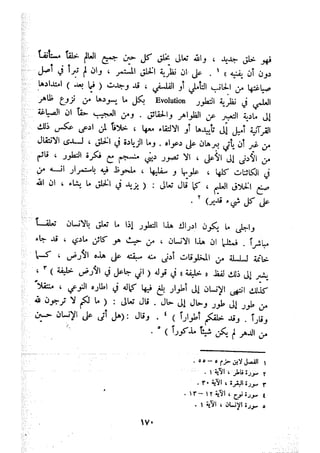 فهو خلق جديد ، والله تعالى يخلق كل حين جميع العالم خلقاً مستأنفاً
دون أن يفنيه » ١ . على ان نظرية الخلق المستمر ، وان لم تبرأ في أصل
صياغتها من الجانب التأملي أو الفلسفي ، قد وجدت ( فيما بعد ) امتدادها
العلمي في نظرية التطور Evolution بكل ما يسودها من نزوع ظاهر
إلى مادية التعبير عن الظواهر والحقائق . ومن العجيب حقاً ان الصياغة
القرآنية أميل إلى تأييدها أو الالتقاء معها ، خلافاً لمن ادعى عكس ذلك
من غير أن يأتي ببرهان على دعواه . وما الزيادة في الخلق ، لسدى الانتقال
من الأدنى إلى الأعلى ، الا تصور ديني منسجم مع فكرة التطور ، قائم
في الكائنات كلها ، علويها وسفليها ، ملحوظ فيه باستمرار انه من
صنع الخلاق العليم ، كما قال تعالى : ( يزيد في الخلق ما يشاء ، ان الله
على كل شيء قدير) ٢ .
واجلى ما يكون ادراك هذا التطور إذا ما تعلق بالانسان تعلقاً
مباشراً . فمثلما ان هذا الانسان ، من حيث هو كائن مادي ، قد جاء
خاتمة لسلسلة من المخلوقات أدنى منه سبقته على هذه الأرض ، كما
يشير إلى ذلك لفظ « خليفة » في قوله ( اني جاعل في الأرض خليفة ) ٣ ،
كذلك انتهى الإنسان إلى أطوار بلغ فيها كماله في اطاره النوعي ، منتقلاً
من طور إلى طور وحال إلى حال . قال تعالى : ( ما لكم لا ترجون لله
وقاراً . وقد خلقكم أطواراً ) ٤ . وقال : (هل أتى على الإنسان حين
من الدهر لم يكن شيئاً مذكوراً ) ٥ .
١ الفصل لابن حزم ٥ - ٥٥ .
٢ سورة فاطر ، الآية ١ .
٣ سورة البقرة ، الآية ٣٠ .
٤ سورة نوح ، الآية ١٢ - ١٣ .
٥ سورة الإنسان ، الآية ١ .
١٧٠